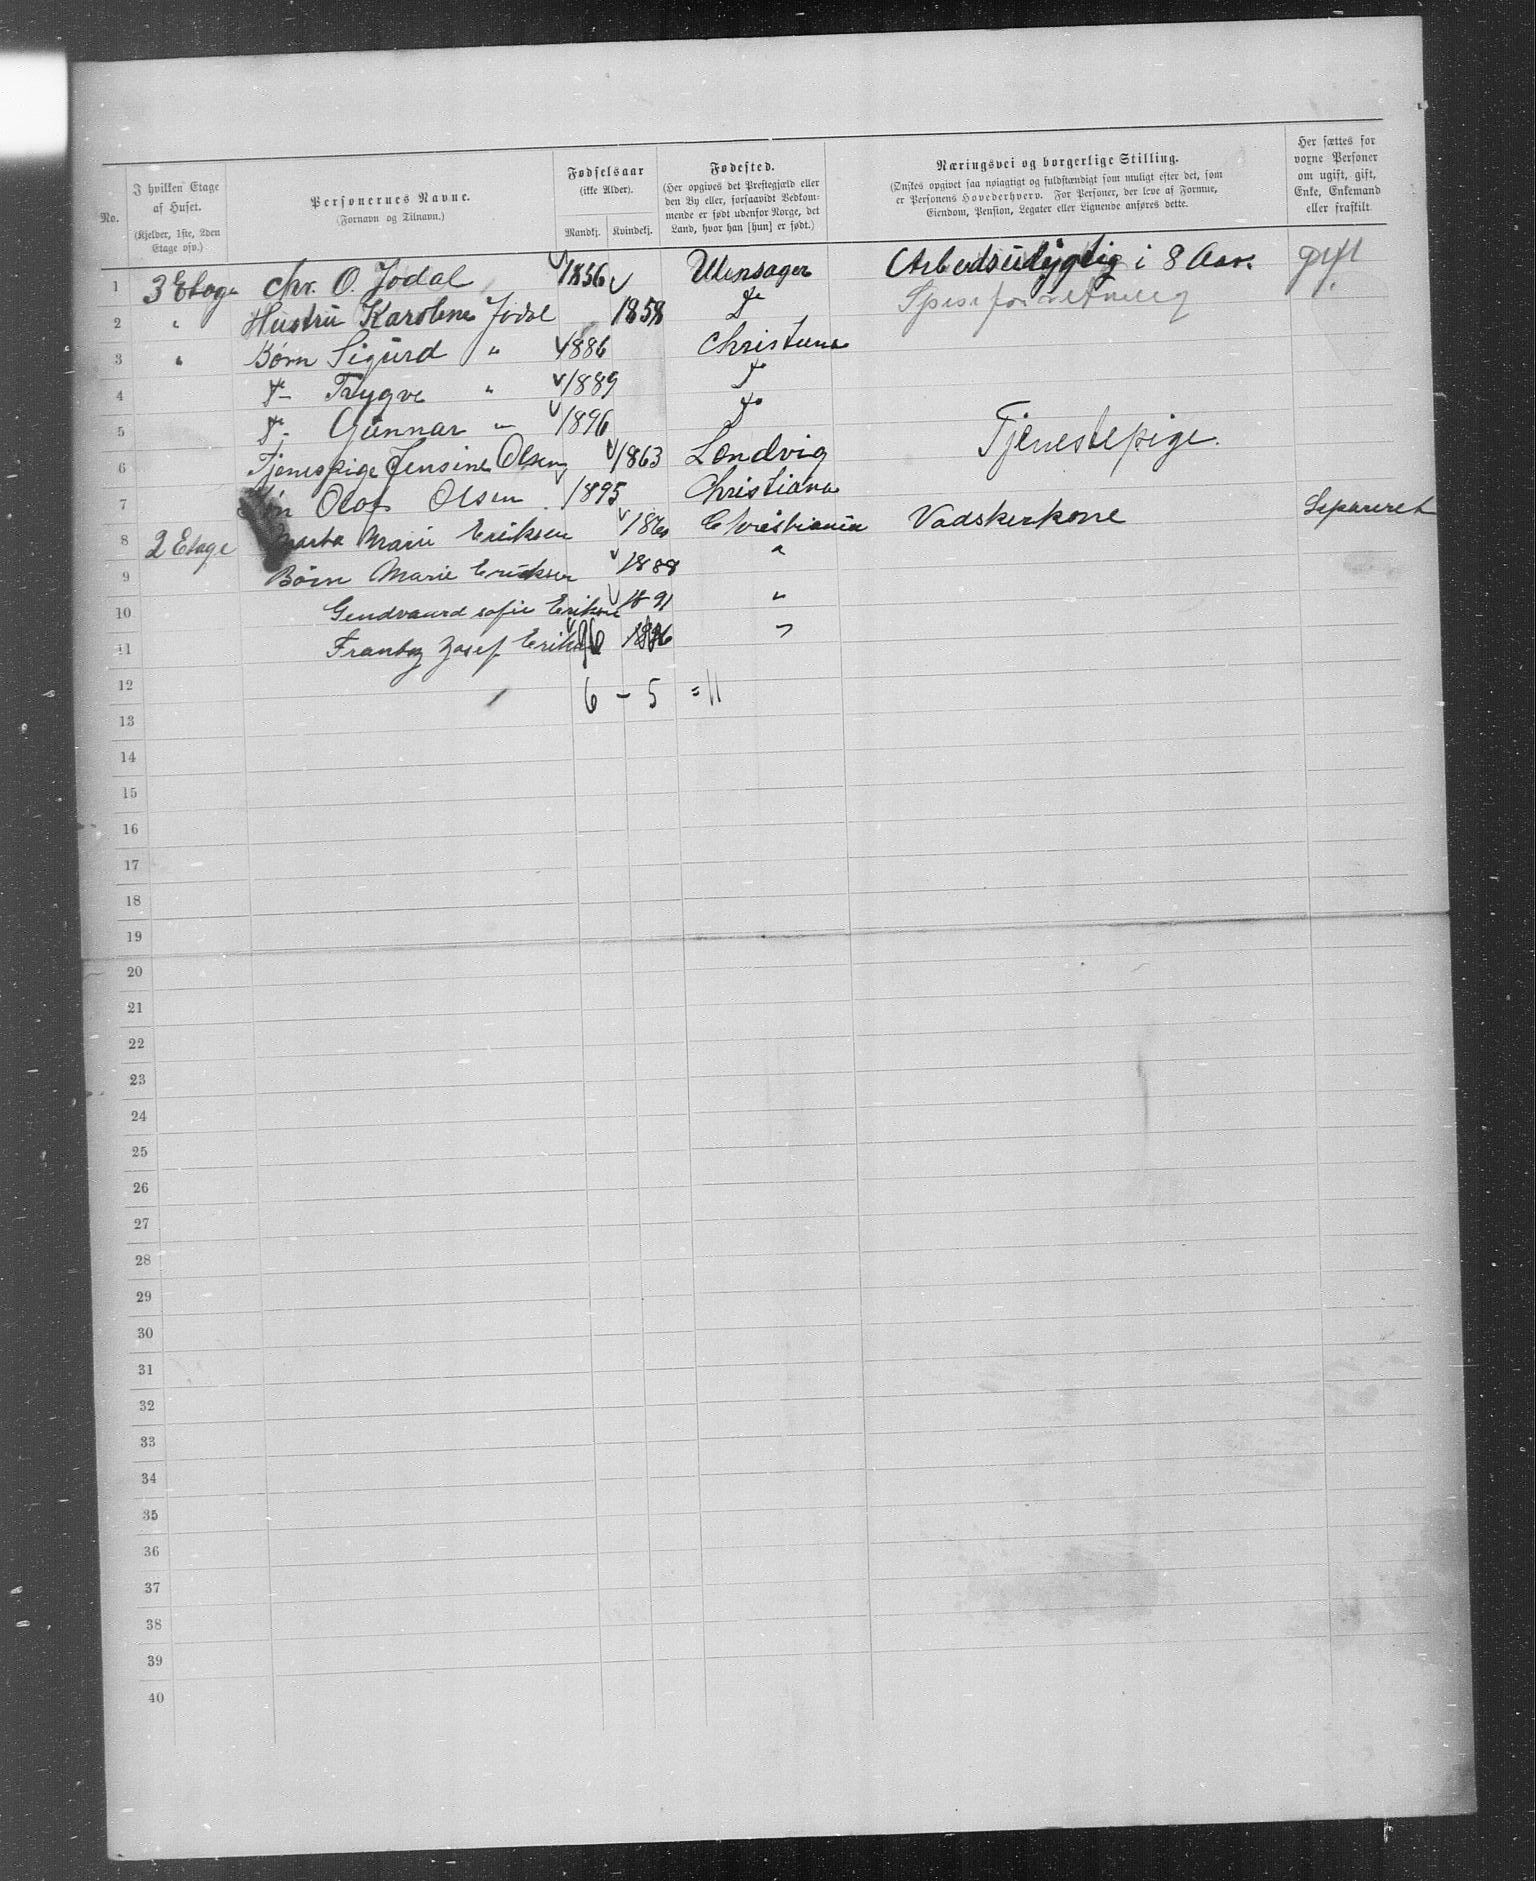 No.
I hvilken Etage af Huset. (Kjelder, 1ste, 2den Etage osv.)
Personernes Navne. (Fornavn og Tilnavn.)
Fødselsaar (ikke Alder). Mandkj. Kvindekj.
Fødested. (Her opgives det Præstegjæld eller den By eller, forsaavidt Vedkommende er født udenfor Norge, det Land, hvor han [hun] er født.)
Næringsvei og borgerlige Stilling. (Ønskes opgivet saa nøiagtigt og fuldstændigt som muligt efter det, som er Personens Hovederhverv. For Personer, der leve af Formue, Eiendom, Pension, Legater eller Lignende anføres dette.
Her sættes for voxne Personer om ugift, gift, Enke, Enkemand eller fraskilt
1 3 Etage Chr. O. Jodal 1856 Ulensager Arbeidsudygtig i 8 Aar. gift
2 " Hustru Karoline Jodal 1858 Do Spiseforretning "
3 " Børn Sigurd " 1886 Christiania
4 Do Trygve " 1889 Do
5 Do Gunnar " 1896 Do
6 Tjenespige Jensine Olsen 1863 Landvig Tjenestepige.
7 Søn Olof Olsen 1895 Christiana
8 2 Etage Marta Marie Eriksen 186 Christiania Vadskerkone Separeret
9 Børn Marie Eriksen 1888 "
10 sofie Eriksen 1891 "
11 Josef Eriksen 96 "
12 6 - 5 = 11
13
14
15
16
17
18
19
20
21
22
23
24
25
26
27
28
29
30
31
32
33
34
35
36
37
38
39
40